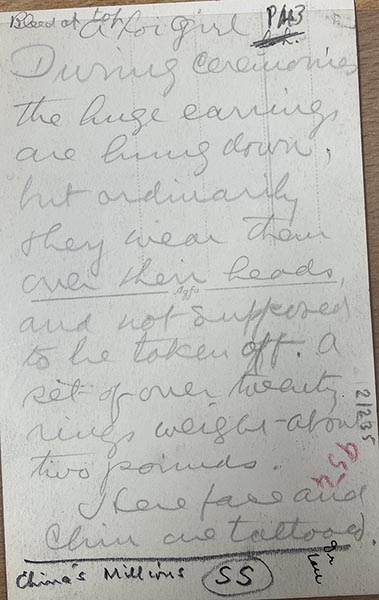 Bleed at top
PM3
a Loi girl
During ceremonies
the huge earrings
are hung down,
but ordinarily
they wear them
over their heads,
Agfa
and not supposed
to be taken off. A
set of over twenty
rings weighs about
two pounds.
Here face and
Chin are tattooed.
21235
China's Millions
SS